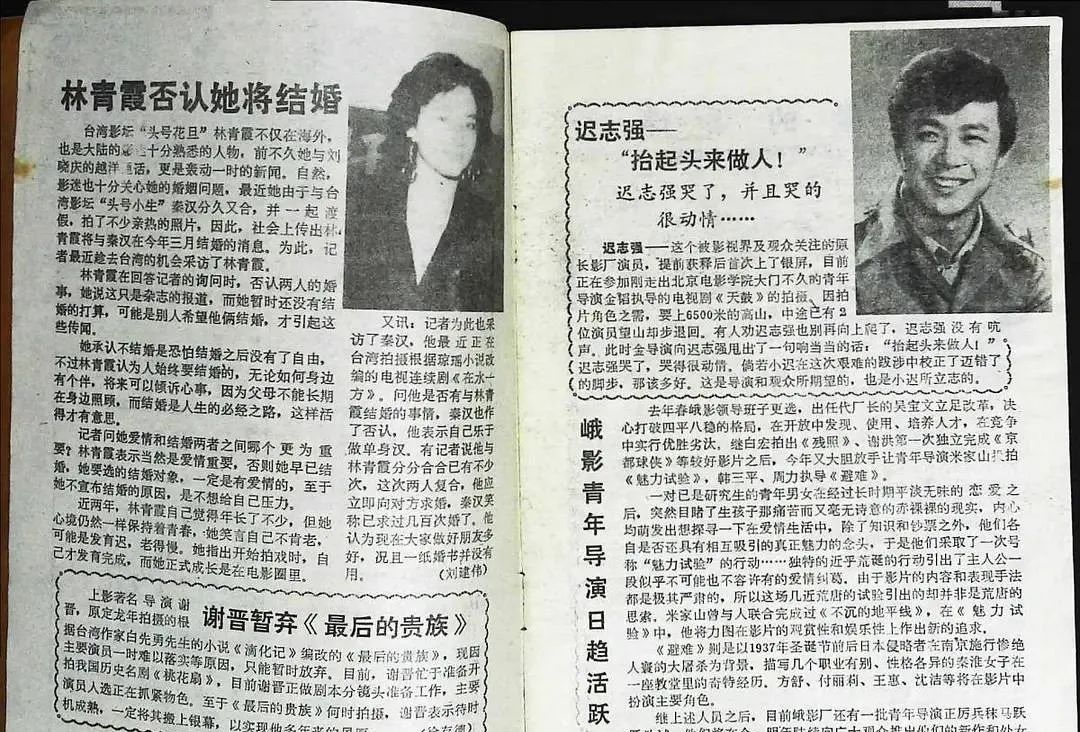 林青霞否认她将结婚
台湾影坛“头号花旦”林青霞不仅在海外，
也是大陆的 十分熟悉的人物，前不久她与刘
晓庆的越洋 话，更是轰动一时的新闻。自然，
影迷也十分关心她的婚姻问题，最近她由于与台
湾影坛“头号小生”秦汉分久又合，并一起渡
假，拍了不少亲热的照片，因此，社会上传出林
青霞将与秦汉在今年三月结婚的消息。为此，记
者最近趁去台湾的机会采访了林青霞。
林青霞在回答记者的询问时，否认两人的婚
事，她说这只是杂志的报道，而她暂时还没有结
婚的打算，可能是别人希望他俩结婚，才引起这
些传闻。
她承认不结婚是恐怕结婚之后没有了自由，
不过林青霞认为人始终要结婚的，无论如何身边
有个伴，将来可以倾诉心事，因为父母不能长期
在身边照顾，而结婚是人生的必经之路，这样活
得才有意思。
记者问她爱情和结婚两者之间哪个更为重
要？林青霞表示当然是爱情重要，否则她早已结
婚，她要选的结婚对象，一定是有爱情的，至于
她不宣布结婚的原因，是不想给自己压力。
近两年，林青霞自己觉得年长了不少，但她
心境仍然一样保持着青春，她笑言自己不肯老，
可能是发育迟，老得慢。她指出开始拍戏时，自
己才发育完成，而她正式成长是在电影圈里。
又讯：记者为此也采
访了秦汉，他最近正在
台湾拍摄根据琼瑶小说改
编的电视连续剧《在水一
方》。问他是否有与林青
霞结婚的事情，秦汉也作
了否认，他表示自己乐于
做单身汉。有记者说他与
林青霞分分合合已有不少
次，这次两人复合，他应
立即向对方求婚，秦汉笑
称已求过几百次婚了。他
认为现在大家做好朋友多
好，况且一纸婚书并没有
用。
（刘建伟）
谢晋暂弃《最后的贵族》
上影著名导演谢
晋，原定龙年拍摄的根
据台湾作家白先勇先生的小说《谪化记》编改的《最后的贵族》，现因
主要演员一时难以落实等原因，只能暂时放弃。目前，谢晋忙于准备开
拍我国历史名剧《桃花扇》，目前谢晋正做剧本分镜头准备工作，主要
演员人选正在抓紧物色。至于《最后的贵族》何时拍摄，谢晋表示待时
机成熟，一定将其搬上银幕，以实现他多年来的
迟志强——
“抬起头来做人！”
迟志强哭了，并且哭的
很动情……
迟志强——这个被影视界及观众关注的原
长影厂演员，提前获释后首次上了银屏，目前
正在参加刚走出北京电影学院大门不久的青年
导演金韬执导的电视剧《天鼓》的拍摄。因拍
片角色之需，要上6500米的高山，中途已有2
位演员望山却步退回。有人劝迟志强也别再向上爬了，迟志强没有吭
声。此时金导演向迟志强甩出了一句响当当的话：“抬起头来做人！”
迟志强哭了，哭得很动情。倘若小迟在这次艰难的跋涉中校正了迈错了
的脚步，那该多好。这是导演和观众所期望的，也是小迟所立志的。
峨影青年导演日趋活跃
去年春峨影领导班子更迭，出任代厂长的吴宝文立足改革，决
心打破四平八稳的格局，在开放中发现、使用、培养人才，在竞争
中实行优胜劣汰。继白宏拍出《残照》、谢洪第一次独立完成《京
都球侠》等较好影片之后，今年又大胆放手让青年导演米家山执拍
《魅力试验》，韩三平、周力执导《避难》。
一对已是研究生的青年男女在经过长时期平淡无味的恋爱之
后，突然目睹了生孩子那痛苦而又毫无诗意的赤裸裸的现实，内心
均萌发出想探寻一下在爱情生活中，除了知识和钞票之外，他们各
自是否还具有相互吸引的真正魅力的念头，于是他们采取了一次号
称“魅力试验”的行动……独特的近乎荒诞的行动引出了主人公一
段似乎不可能也不容许有的爱情纠葛。由于影片的内容和表现手法
都是极其严肃的，所以这场几近荒唐的试验引出的却并非是荒唐的
思索。米家山曾与人联合完成过《不沉的地平线》，在《魅力试
验》中，他将力图在影片的观赏性和娱乐性上作出新的追求。
《避难》则是以1937年圣诞节前后日本侵略者在南京施行惨绝
人寰的大屠杀为背景，描写几个职业有别、性格各异的秦淮女子在
一座教堂里的奇特经历。方舒、付丽莉、王惠、沈洁等将在影片中
扮演主要角色。
继上述人员之后，目前峨影厂还有一批青年导演正厉兵秣马跃